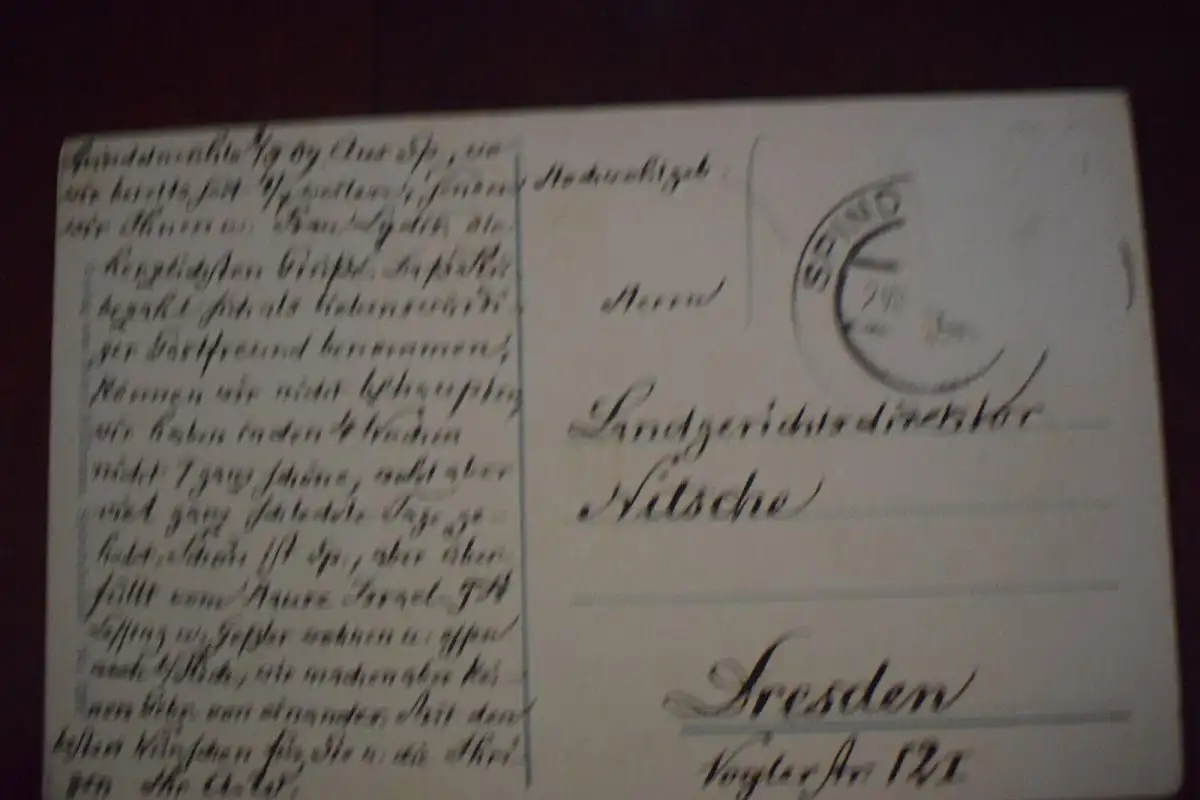 09 Aus Sp., wo
wir bereits seit
wir Ihnen u. Frau Lydia, die
herzlichsten Grüße. Daß
bezahl sich als liebenswürdi-
ger Gastfreund benommen,
können wir nicht behaupten,
wir haben in den 4 Wochen
nicht 7 ganz schöne, wohl aber
viel ganz schlechte Tage ge-
habt. Schön ist Sp., aber über-
füllt vom Hause Israel.
u. Geßler wohnen u. essen
auch wir machen aber kei-
nen von einander. Mit den
besten Wünschen für Sie u. die Ihri-
gen Ihr
Hochwohlgeb.
SPIND
Herrn
Landgerichtsdirektor
Nitsche
Dresden
Voglerstr. 12 I